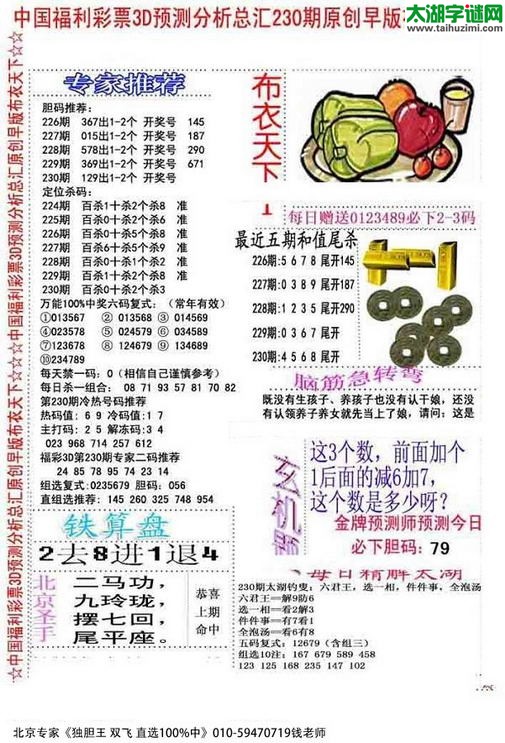 太湖字谜网
www.taihuzimi.com
中国福利彩票3D预测分析总汇230期原创早版
☆中国福利彩票3D预测分析总汇原创早版布衣天下☆☆☆中国福利彩票3D预测分析总汇原创早版布衣天下☆
专家推荐
胆码推荐:
226期 367出1-2个 开奖号 145
227期 015出1-2个 开奖号 187
228期 578出1-2个 开奖号 290
229期 369出1-2个 开奖号 671
230期 129出1-2个 开奖号
定位杀码:
224期 百杀1十杀2个杀8 准
225期 百杀0十杀2个杀6 准
226期 百杀6十杀1个杀8 准
227期 百杀2十杀1个杀6 准
228期 百杀1十杀6个杀5 准
229期 百杀1十杀2个杀8 准
230期 百杀0十杀2个杀3
万能100%中奖六码复式: (常年有效)
①013567 ② 013568 ③ 014569
④023578 ⑤ 024579 ⑥ 034689
⑦123678 ⑧ 124679 ⑨ 134589
⑩234789
每天禁一码: 0 (相信自己谨慎参考)
每日杀一组合: 08 71 93 57 81 70 82
第230期冷热号码推荐
热码值: 6 9 冷码值: 1 7
主打码: 2 5 解冻码: 3 4
023 968 714 257 612
福彩3D第230期专家二码推荐
24 85 78 95 74 23 14
组选复式: 0235679 胆码: 056
直组选推荐: 145 260 325 748 954
铁算盘
2去8进1退4
北京圣手
二马功,
九玲珑,
摆七回,
尾平座。
恭喜
上期
命中
布衣天下
每日赠送0123489必下2-3码
最近五期和值尾杀
226期:5 6 7 8 尾开145
227期:0 3 8 9 尾开187
228期:1 2 3 5 尾开290
229期:0 3 6 7 尾开
230期:4 5 6 8 尾开
脑筋急转弯
既没有生孩子、养孩子也没有认干娘,还没
有认领养子养女就先当上了娘,请问:这是
玄机
这3个数,前面加个
1后面的减6加7,
这个数是多少呀?
金牌预测师预测今日
必下胆码: 79
每日精解太湖
230期太湖钓叟: 六君王,选一相,件件事,全泡汤
六君王==解9防6
选一相==看2解3
件件事==看7看1
全泡汤==看6有8
五码复式: 12679 (含组三)
组选10注: 167 679 589 458
123 125 168 235 147 102
北京专家《独胆王 双飞 直选100%中》010-59470719钱老师